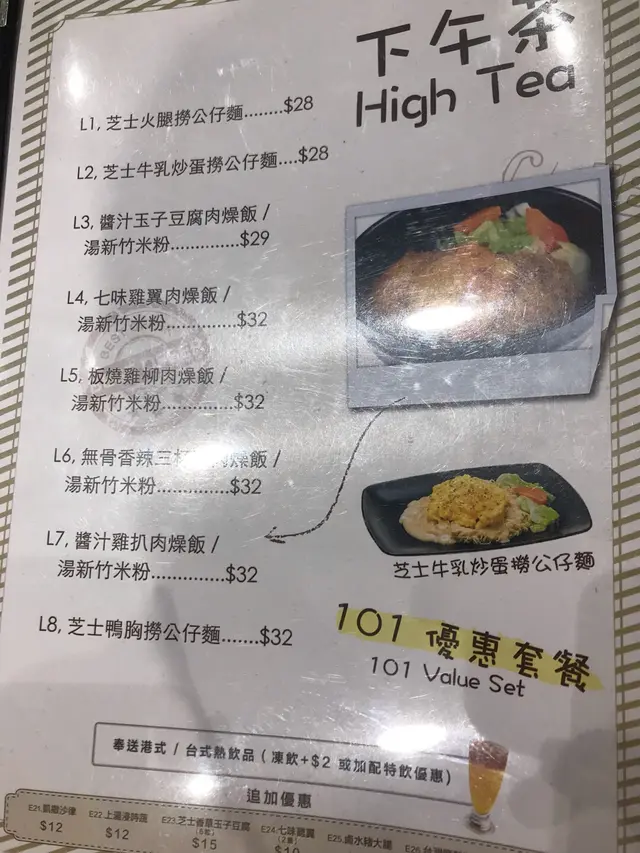 下午茶
High Tea
L1, 芝士火腿撈公仔麵........$28
L2, 芝士牛乳炒蛋撈公仔麵....$28
L3, 醬汁玉子豆腐肉燥飯 /
湯新竹米粉..............$29
L4, 七味雞翼肉燥飯 /
湯新竹米粉..............$32
L5, 板燒雞柳肉燥飯 /
湯新竹米粉..............$32
L6, 無骨香辣三杯燥飯 /
湯新竹米粉..............$32
L7, 醬汁雞扒肉燥飯 /
湯新竹米粉..............$32
L8, 芝士鴨胸撈公仔麵.......$32
芝士牛乳炒蛋撈公仔麵
101 優惠套餐
101 Value Set
奉送港式 / 台式熱飲品 ( 凍飲+$2 或加配特飲優惠 )
追加優惠
E21.凱撒沙律
$12
E22.上湯浸時蔬
$12
E23.芝士香草玉子豆腐
$15
E24.七味雞翼
E25.鹵水豬大腸